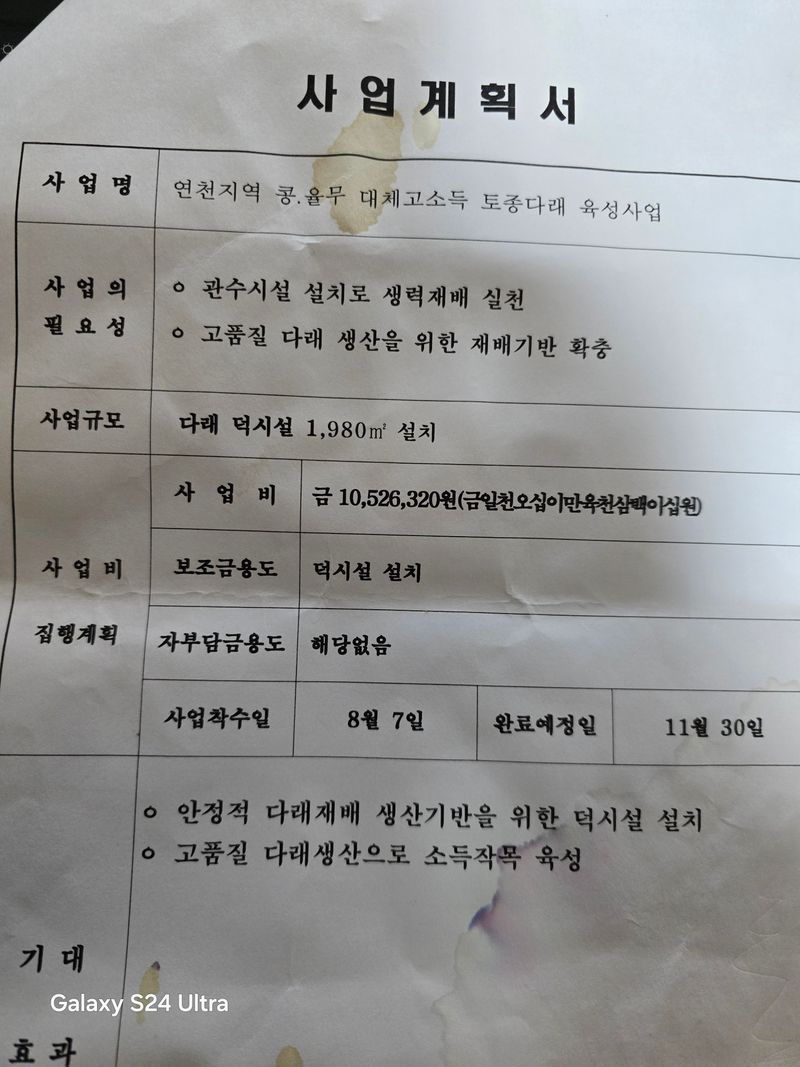 사업계획서
사업명
연천지역 콩.율무 대체고소득 토종다래 육성사업
사업의
필요성
ㅇ 관수시설 설치로 생력재배 실천
ㅇ 고품질 다래 생산을 위한 재배기반 확충
사업규모
다래 덕시설 1,980㎡ 설치
사업비
집행계획
사업비
금 10,526,320원(금일천오십이만육천삼백이십원)
보조금용도
덕시설 설치
자부담금용도
해당없음
사업착수일
8월 7일
완료예정일
11월 30일
기대
효과
ㅇ 안정적 다래재배 생산기반을 위한 덕시설 설치
ㅇ 고품질 다래생산으로 소득작목 육성
Galaxy S24 Ultra